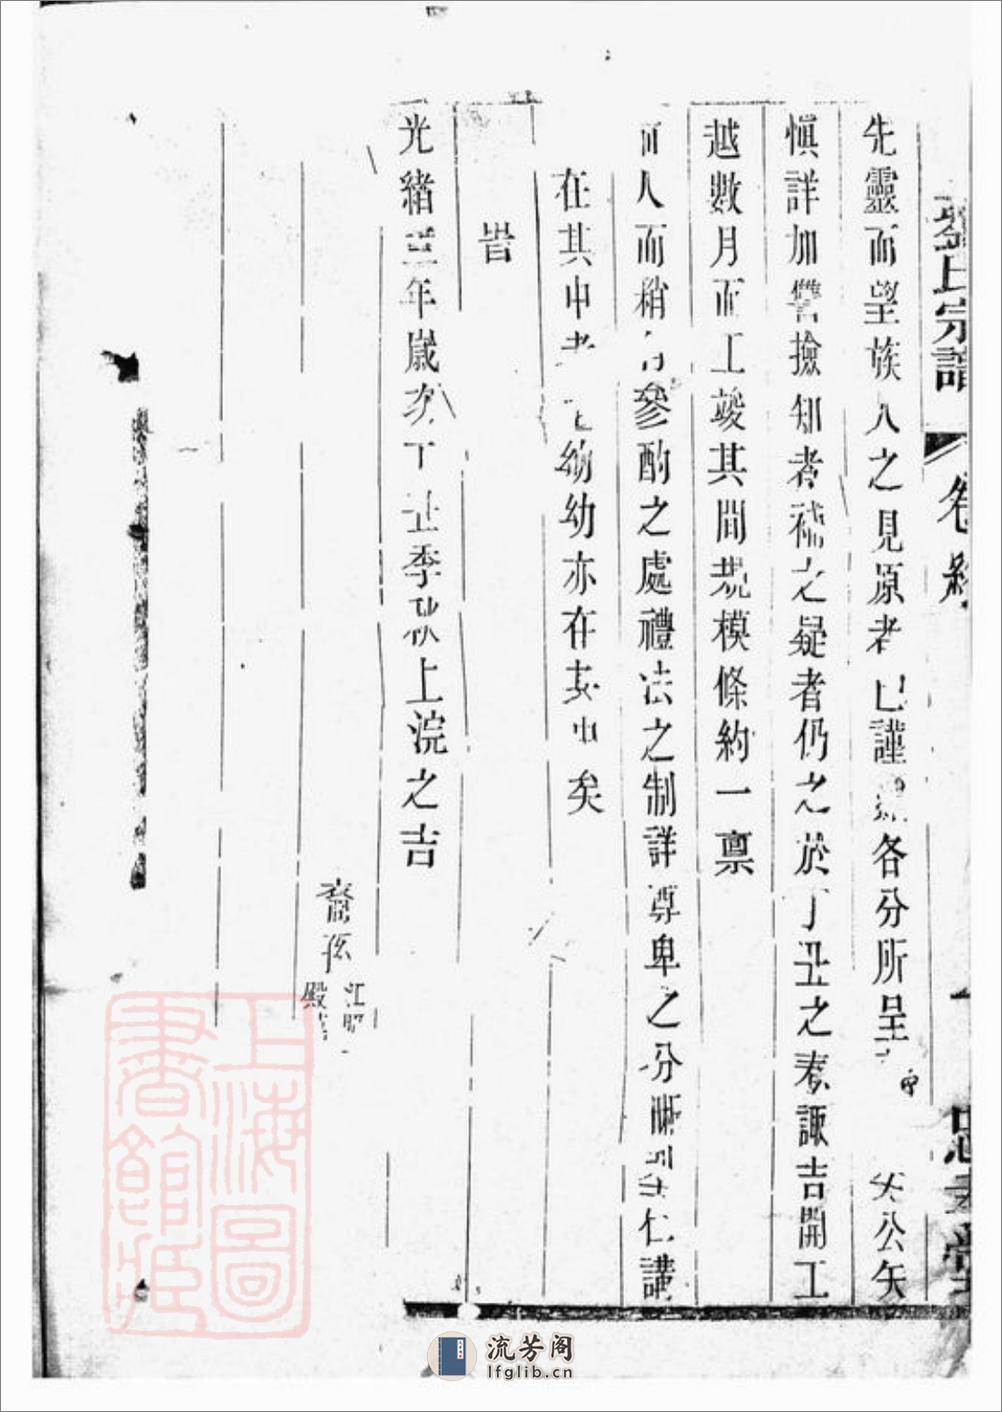 氏宗譜 卷 一
先靈而望族人之見原者已謹 各分所呈 公矢
慎詳加讐撿知者補之疑者仍之於丁丑之春諏吉開工
越數月而工竣其間規模條約一禀
前人而稍有參酌之處禮法之制詳尊卑之分晰 仁講
在其中老 幼幼亦在其中矣
峕
光緒三年歲次丁丑季秋上浣之吉
裔孫
殿
上海圖書館藏
流芳阁
lfglib.cn